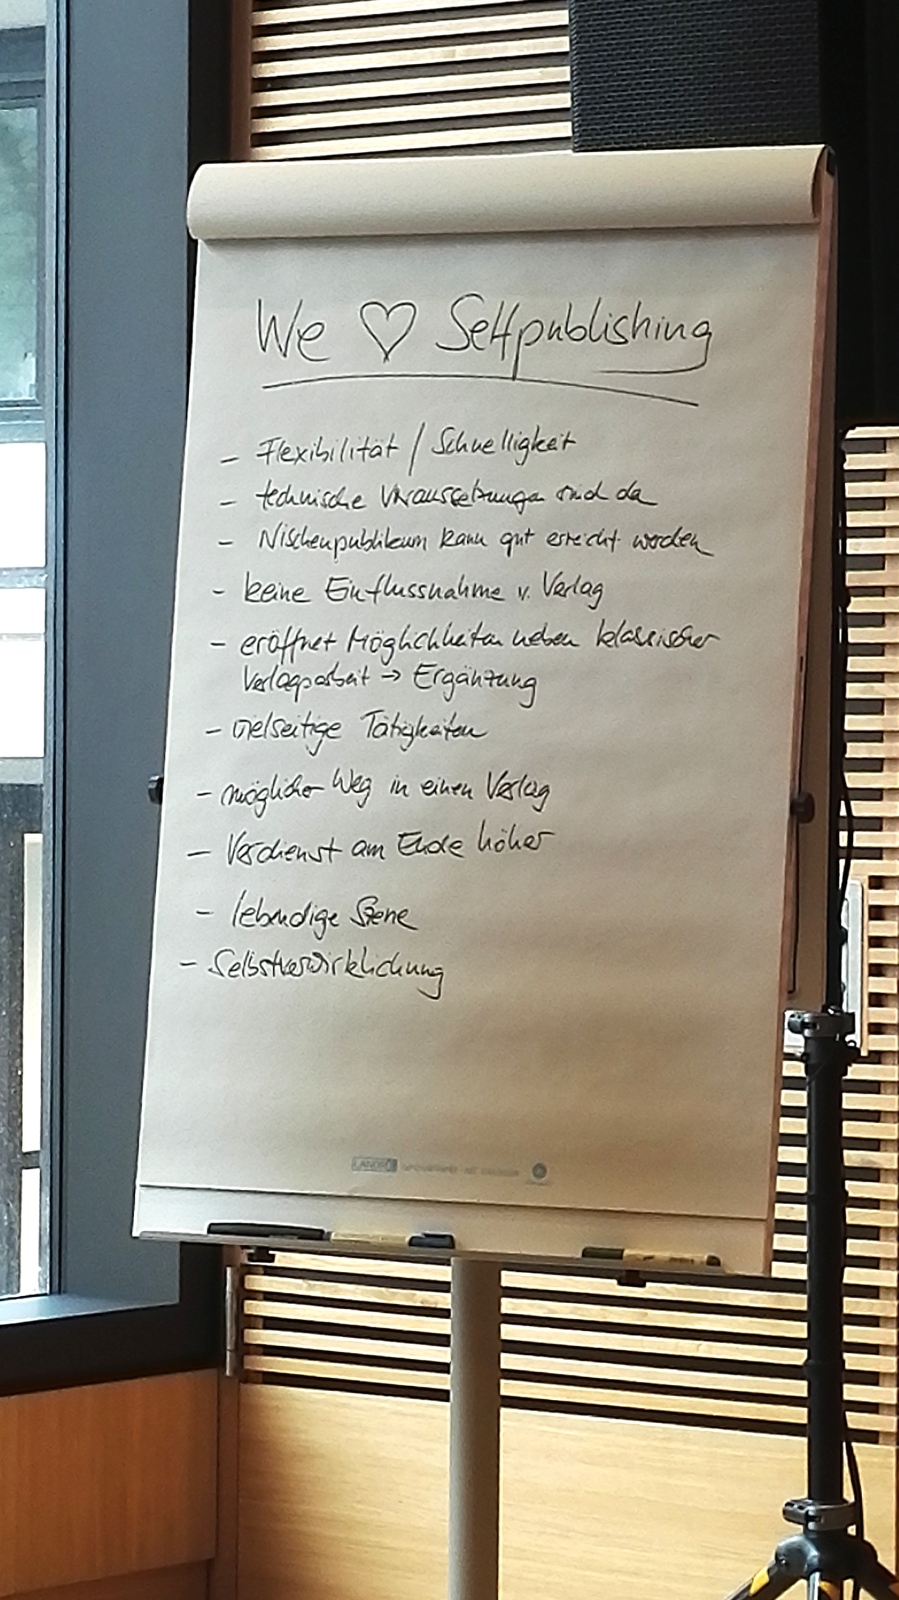 We ♡ Selfpublishing
– Flexibilität / Schnelligkeit
– technische Voraussetzungen sind da
– Nischenpublikum kann gut erreicht werden
– keine Einflussnahme v. Verlag
– eröffnet Möglichkeiten neben klassischer
Verlagsarbeit → Ergänzung
– vielseitige Tätigkeiten
– möglicher Weg in einen Verlag
– Verdienst am Ende höher
– lebendige Szene
– Selbstverwirklichung